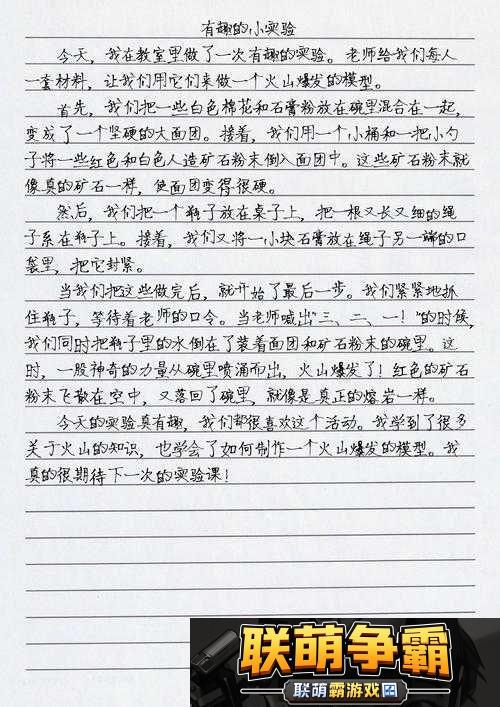 有趣的小实验
今天，我在教室里做了一次有趣的实验。老师给我们每人
一套材料，让我们用它们来做一个火山爆发的模型。
首先，我们把一些白色棉花和石膏粉放在碗里混合在一起，
变成了一个坚硬的大面团。接着，我们用一个小桶和一把小勺
子将一些红色和白色人造矿石粉末倒入面团中。这些矿石粉末就
像真的矿石一样，使面团变得很硬。
然后，我们把一个瓶子放在桌子上，把一根又长又细的绳
子系在瓶子上。接着，我们又将一小块石膏放在绳子另一端的口
袋里，把它封紧。
当我们把这些做完后，就开始了最后一步。我们紧紧地抓
住瓶子，等待着老师的口令。当老师喊出“三、二、一！”的时候，
我们同时把瓶子里的水倒在了装着面团和矿石粉末的碗里。这
时，一股神奇的力量从碗里喷涌而出，火山爆发了！红色的矿石
粉末飞散在空中，又落回了碗里，就像是真正的熔岩一样。
今天的实验真有趣，我们都很喜欢这个活动。我学到了很多
关于火山的知识，也学会了如何制作一个火山爆发的模型。我
真的很期待下一次的实验课！
联萌争霸
联萌霸游戏